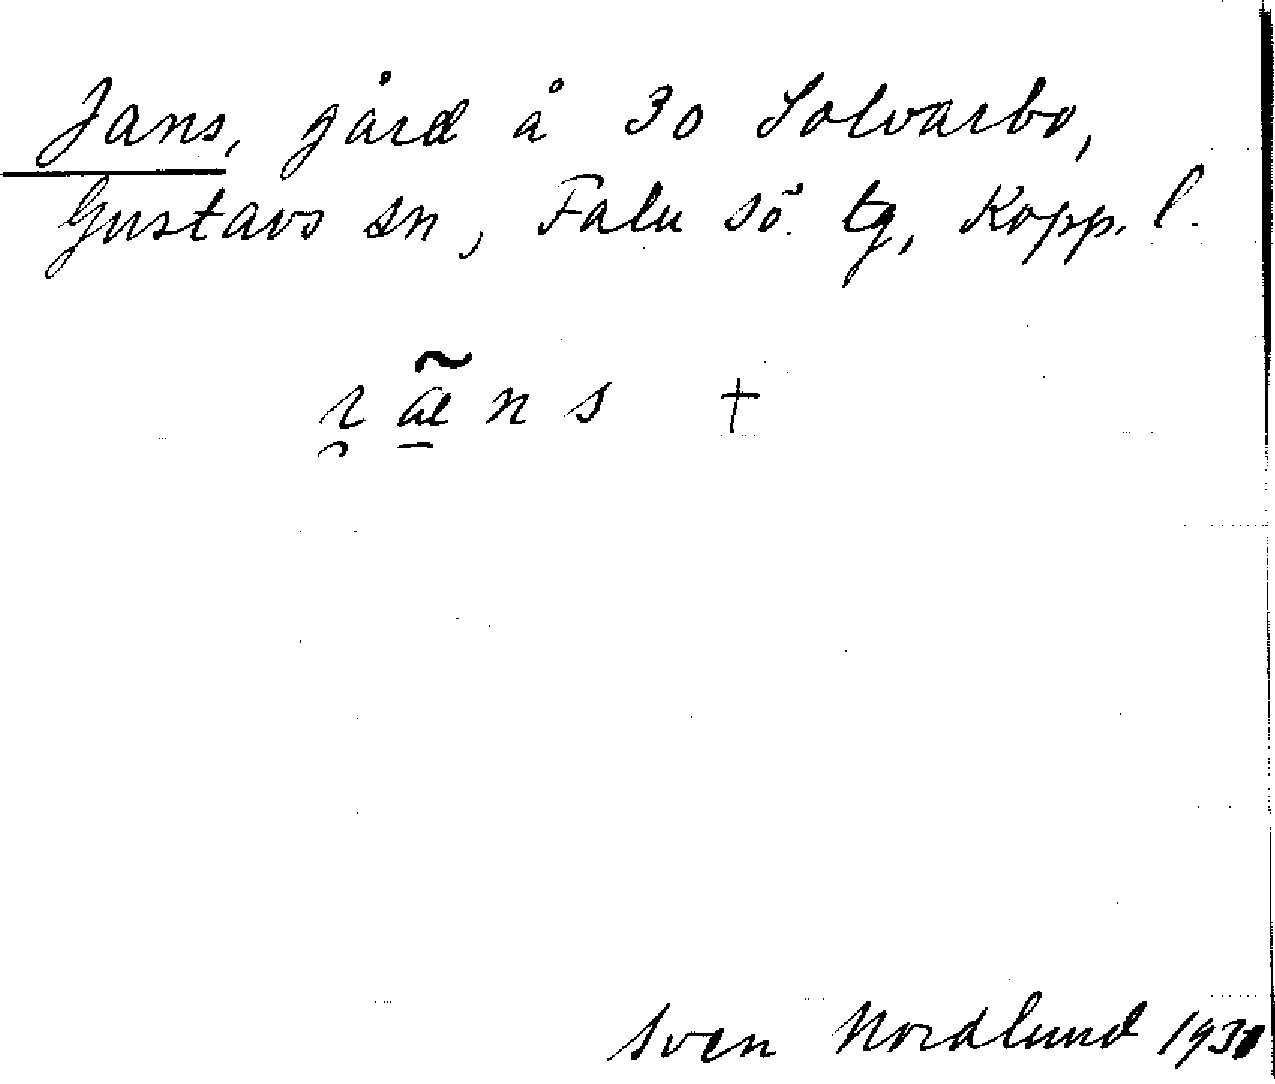 Jans, gård å 30 Solvarbo,
Gustavs sn, Falu sö. tg, Kopp. l.
ı̯ æ̠̃ n s +
Sven Nordlund 1930